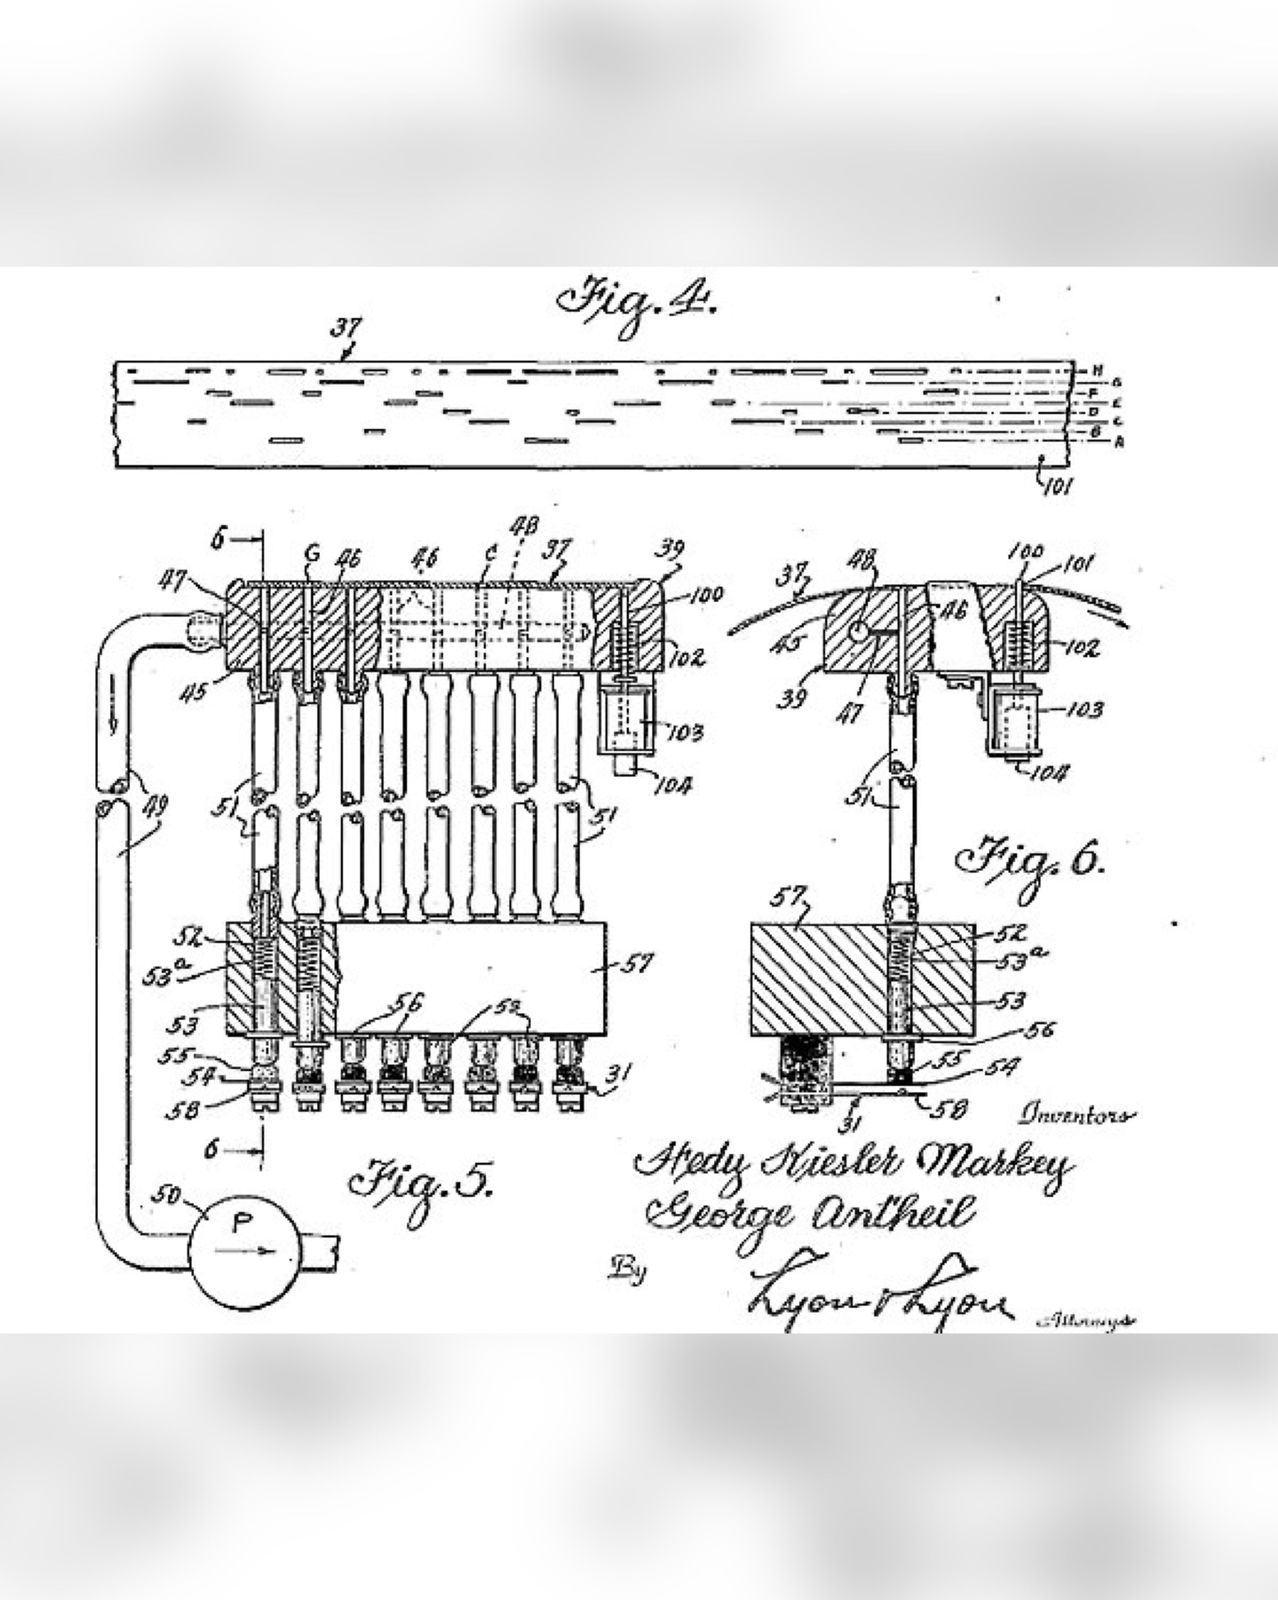 Fig. 4.
37
H
G
F
E
D
C
B
A
101
6
G
46
46
C
48
37
39
47
100
45
102
103
104
49
51
51
52
53a
53
57
56
53
55
54
58
31
6
Fig. 5.
50
P
37
48
100
101
46
45
102
39
47
103
104
51
Fig. 6.
57
52
53a
53
56
55
54
58
31
Inventors
Hedy Kiesler Markey
George Antheil
By
Lyon & Lyon
Attorneys